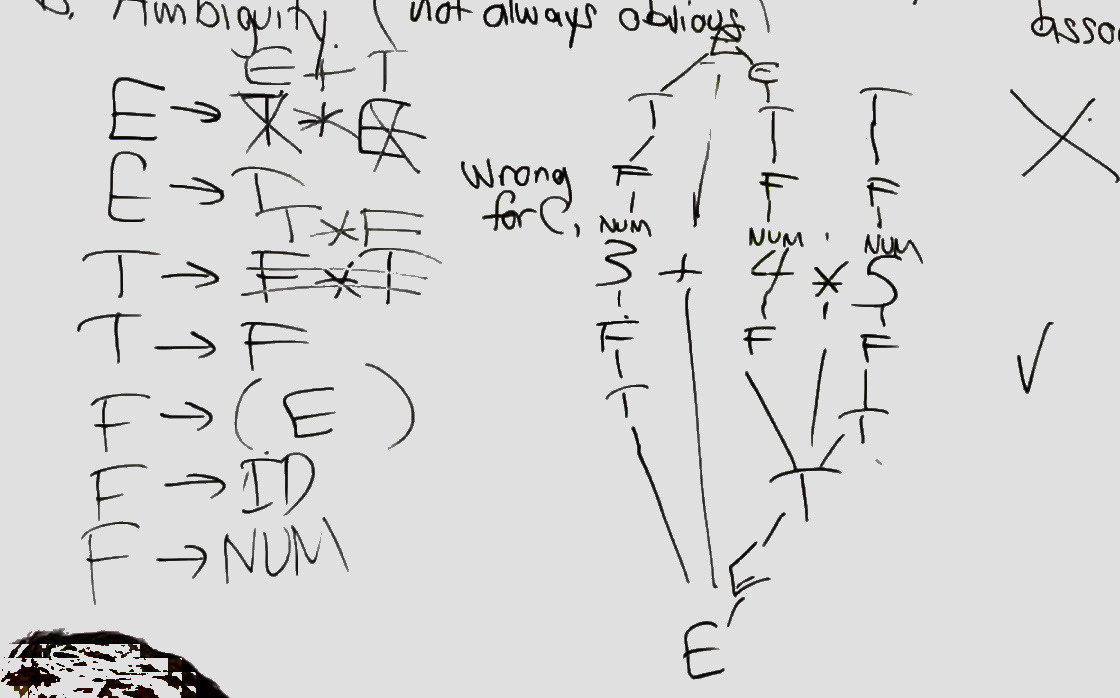 B. Ambiguity (not always obvious)
asso
E + T
E → T * E
E → T
T * F
T → F * T
T → F
F → ( E )
F → ID
F → NUM
Wrong for C,
E
T E
T T
F F F
NUM NUM NUM
3 + 4 * 5
F F F
T T
T
E
E